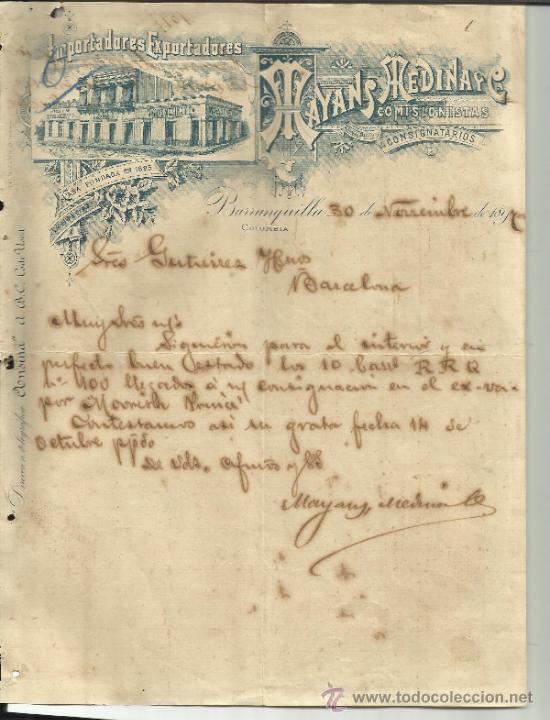 Importadores Exportadores
Mayans, Medina y Cª
COMISIONISTAS
CONSIGNATARIOS
CASA FUNDADA EN
Barranquilla 30 de Noviembre de 189
COLOMBIA
1
Sres Gutierrez Hnos
Barcelona
Muy Sres ntrs
Siguieron para el interior y en
perfecto buen estado los 10 Barrl R R Q
100 llegados á n/ consignacion en el ex-va-
por Moorish Prince
Contestamos asi su grata fecha 14 de
Octubre ppdo
De Vds. afmos y SS
Mayans, Medina Cª
Direccion telegrafica A.B.C. Code Used
todocoleccion
www.todocoleccion.net